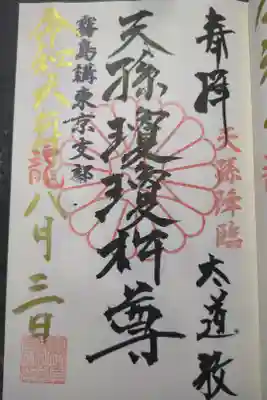 奉拝
天孫降臨
太道教
天孫瓊瓊杵尊
霧島講東京支部
令和六年
龍
八月三日